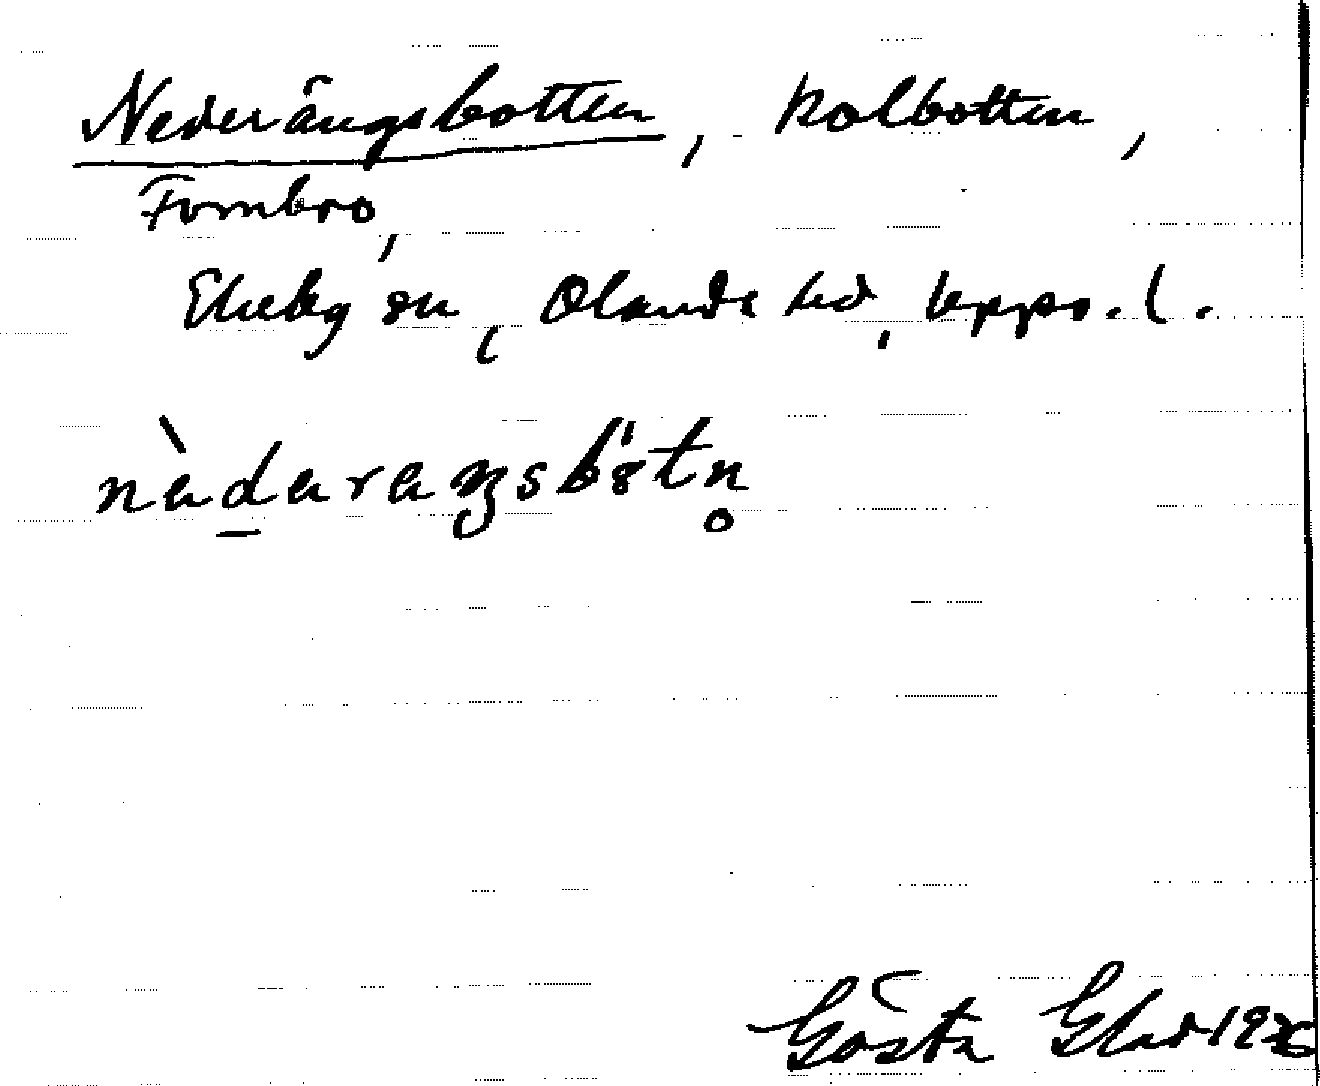 Nederängsbotten, kolbotten,
Fornbro,
Ekeby sn, Olands hd, Upps. l.
nèdaraŋsbòtn̥
Gösta Glad 1936